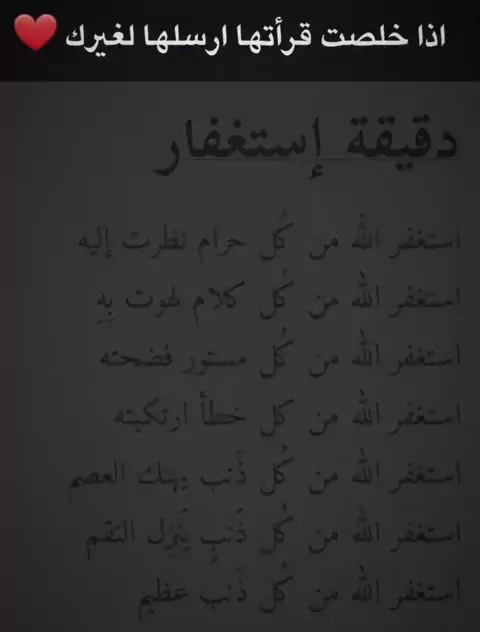 اذا خلصت قرأتها ارسلها لغيرك ❤️
دقيقة إستغفار
استغفر الله من كُل حرام نظرت إليه
استغفر الله من كُل كلام لهوت بِهِ
استغفر الله من كُل مستور فضحته
استغفر الله من كل خطأ ارتكبته
استغفر الله من كُل ذَنب يهتك العصم
استغفر الله من كُل ذَنبٍ يَنزِل النقم
استغفر الله من كُل ذَنب عظيم